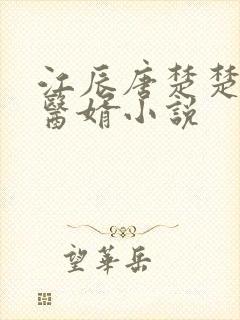 江辰唐楚楚
醫婿小説
望華岳